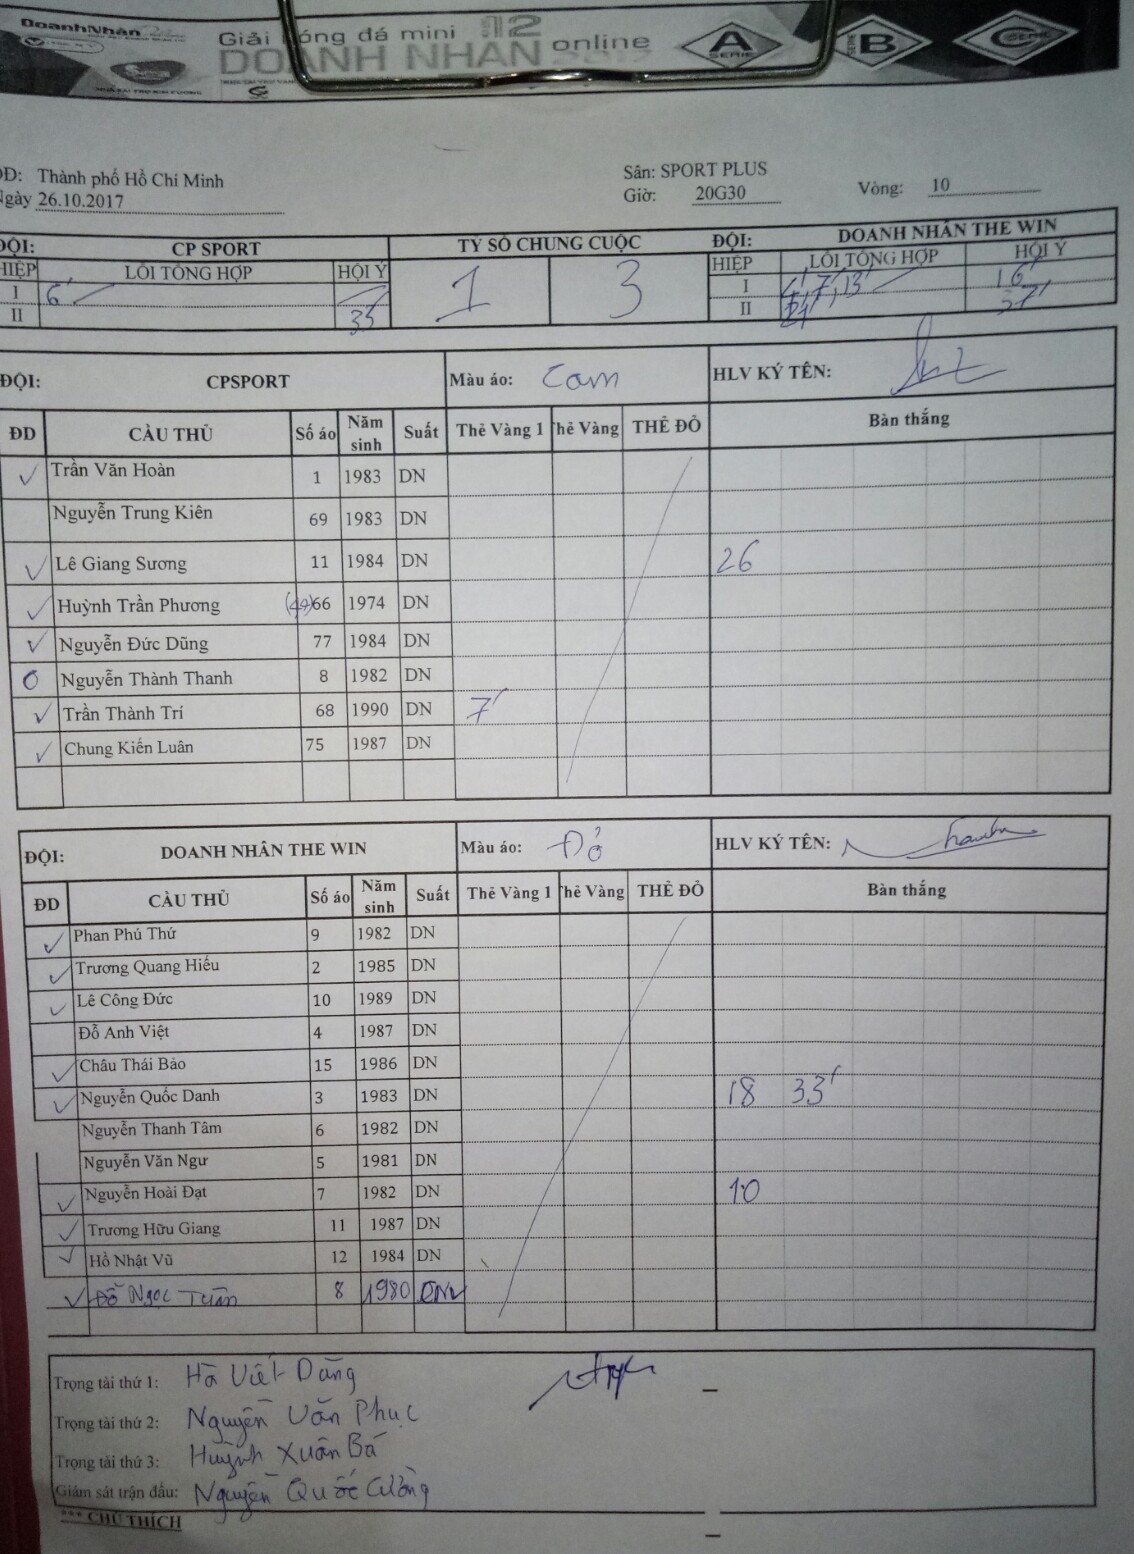 DoanhNhân
Giải bóng đá mini 12
DOANH NHÂN online 2017
A SERIE B SERIE C SERIE
ĐĐ: Thành phố Hồ Chí Minh Sân: SPORT PLUS
Ngày 26.10.2017 Giờ: 20G30 Vòng: 10
ĐỘI: CP SPORT TỶ SỐ CHUNG CUỘC ĐỘI: DOANH NHÂN THE WIN
HIỆP LỖI TỔNG HỢP HỘI Ý 1 3 HIỆP LỖI TỔNG HỢP HỘI Ý
I 6' I 7', 13' 16'
II 35 II 37'
ĐỘI: CPSPORT Màu áo: Cam HLV KÝ TÊN:
ĐD CẦU THỦ Số áo Năm sinh Suất Thẻ Vàng 1 Thẻ Vàng THẺ ĐỎ Bàn thắng
Trần Văn Hoàn 1 1983 DN
Nguyễn Trung Kiên 69 1983 DN
Lê Giang Sương 11 1984 DN 26
Huỳnh Trần Phương (49) 66 1974 DN
Nguyễn Đức Dũng 77 1984 DN
0 Nguyễn Thành Thanh 8 1982 DN
Trần Thành Trí 68 1990 DN 7'
Chung Kiến Luân 75 1987 DN
ĐỘI: DOANH NHÂN THE WIN Màu áo: Đỏ HLV KÝ TÊN:
ĐD CẦU THỦ Số áo Năm sinh Suất Thẻ Vàng 1 Thẻ Vàng THẺ ĐỎ Bàn thắng
Phan Phú Thứ 9 1982 DN
Trương Quang Hiếu 2 1985 DN
Lê Công Đức 10 1989 DN
Đỗ Anh Việt 4 1987 DN
Châu Thái Bảo 15 1986 DN
Nguyễn Quốc Danh 3 1983 DN 18 33'
Nguyễn Thanh Tâm 6 1982 DN
Nguyễn Văn Ngư 5 1981 DN
Nguyễn Hoài Đạt 7 1982 DN 10
Trương Hữu Giang 11 1987 DN
Hồ Nhật Vũ 12 1984 DN
Đỗ Ngọc Tuấn 8 1980 DN
Trọng tài thứ 1: Hà Viết Dũng
Trọng tài thứ 2: Nguyễn Văn Phục
Trọng tài thứ 3: Huỳnh Xuân Bá
Giám sát trận đấu: Nguyễn Quốc Cường
*** CHÚ THÍCH